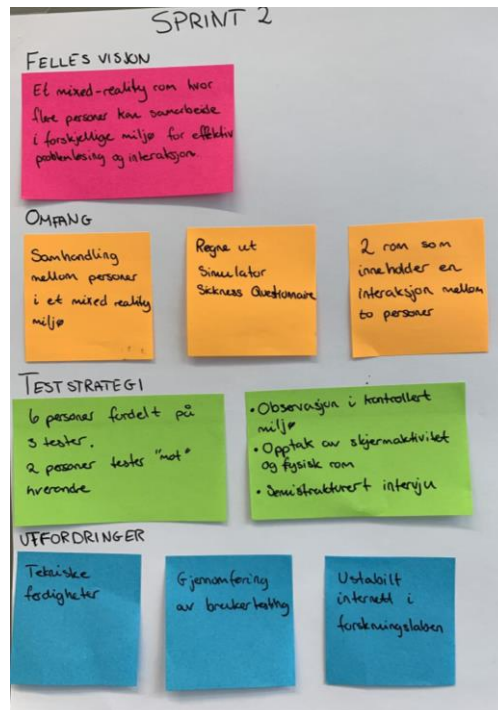 SPRINT 2
FELLES VISJON
Et mixed-reality rom hvor
flere personer kan samarbeide
i forskjellige miljø for effektiv
problemløsing og interaksjon.
OMFANG
Samhandling
mellom personer
i et mixed reality
miljø
Regne ut
Simulator
Sickness Questionaire
2 rom som
inneholder en
interaksjon mellom
to personer
TESTSTRATEGI
6 personer fordelt på
3 tester.
2 personer tester "mot"
hverandre
• Observasjon i kontrollert
miljø
• Opptak av skjermaktivitet
og fysisk rom
• Semistrukturert intervju
UTFORDRINGER
Tekniske
ferdigheter
Gjennomføring
av brukertesting
Ustabilt
internett i
forskningslaben